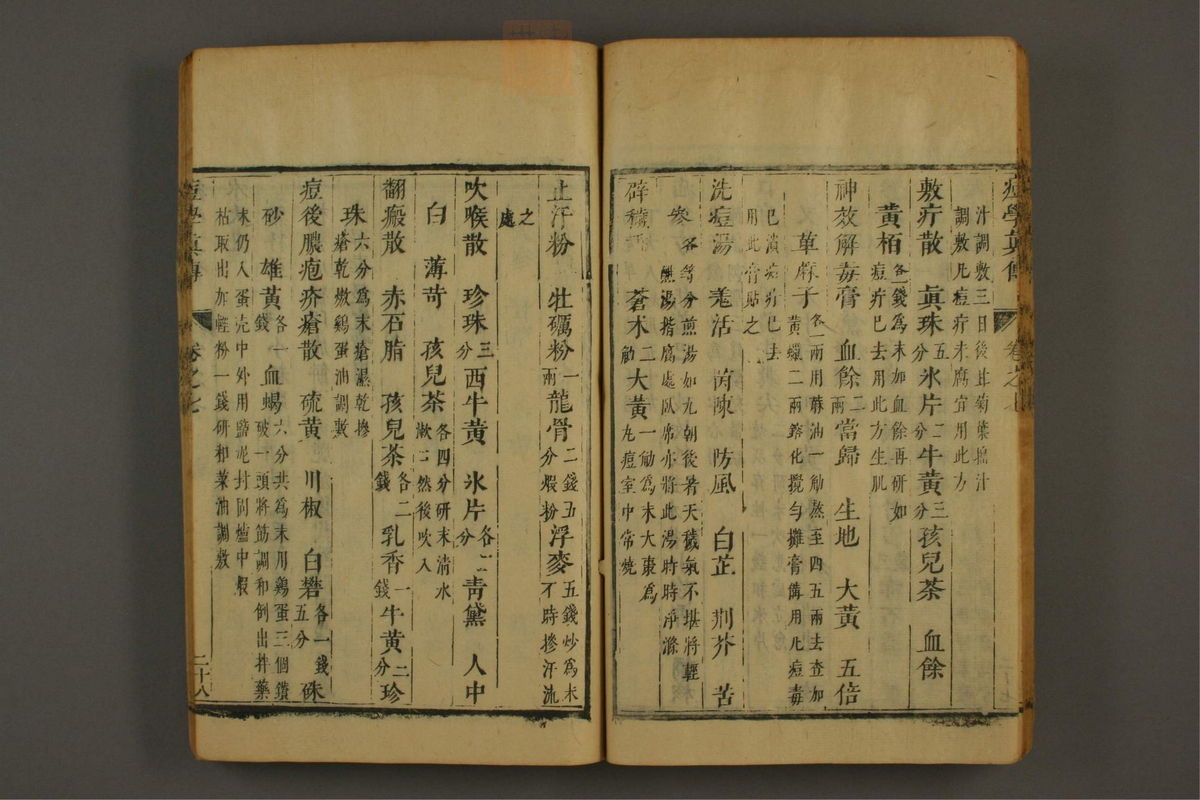 痘學真傳 卷之七
汁調敷三日後甘菊葉搗汁
調敷凡痘疔未腐宜用此方
敷疔散 眞珠五分 氷片二分 牛黃三分 孩兒茶 血餘
黃栢各二錢為末加血餘再研如
痘疔已去用此方生肌
神效解毒膏 血餘二兩 當歸 生地 大黃 五倍
草麻子各一兩用蔴油一觔熬至四五兩去查加
黃蠟二兩鎔化攪勻攤膏備用凡痘毒
已潰痘疔已去
用此膏貼之
洗痘湯 羗活 茵陳 防風 白芷 荆芥 苦
參各等分煎湯如九朝後暑天穢氣不堪將輕
熊湯揩腐處臥席亦將此湯時時淨滌
辟穢 蒼术二觔 大黃一觔為末大棗為
丸痘室中常燒
止汗粉 牡礪粉一兩 龍骨二錢五分煆粉 浮麥五錢炒為末
不時摻汗流
之處
吹喉散 珍珠三分 西牛黃 氷片各二分 青黛 人中
白 薄苛 孩兒茶各四分研末清水
漱二然後吹入
翻瘢散 赤石脂 孩兒茶各二錢 乳香一錢 牛黃二分 珍
珠六分為末瘡濕乾摻
瘡乾燉鷄蛋油調敷
痘後膿疱疥瘡散 硫黃 川椒 白礬各一錢五分 硃
砂 雄黃各一錢 血蝎六分共為末用鷄蛋三個鑽
破一頭將筯調和倒出拌藥
末仍入蛋壳中外用鹽泥封固爐中煆
枯取出加輕粉一錢研和菜油調敷
痘學真傳 卷之七 二十八